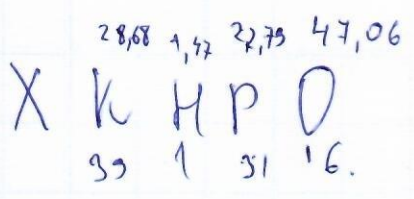 28,68 1,47 22,79 47,06
X K H P O
39 1 31 16.